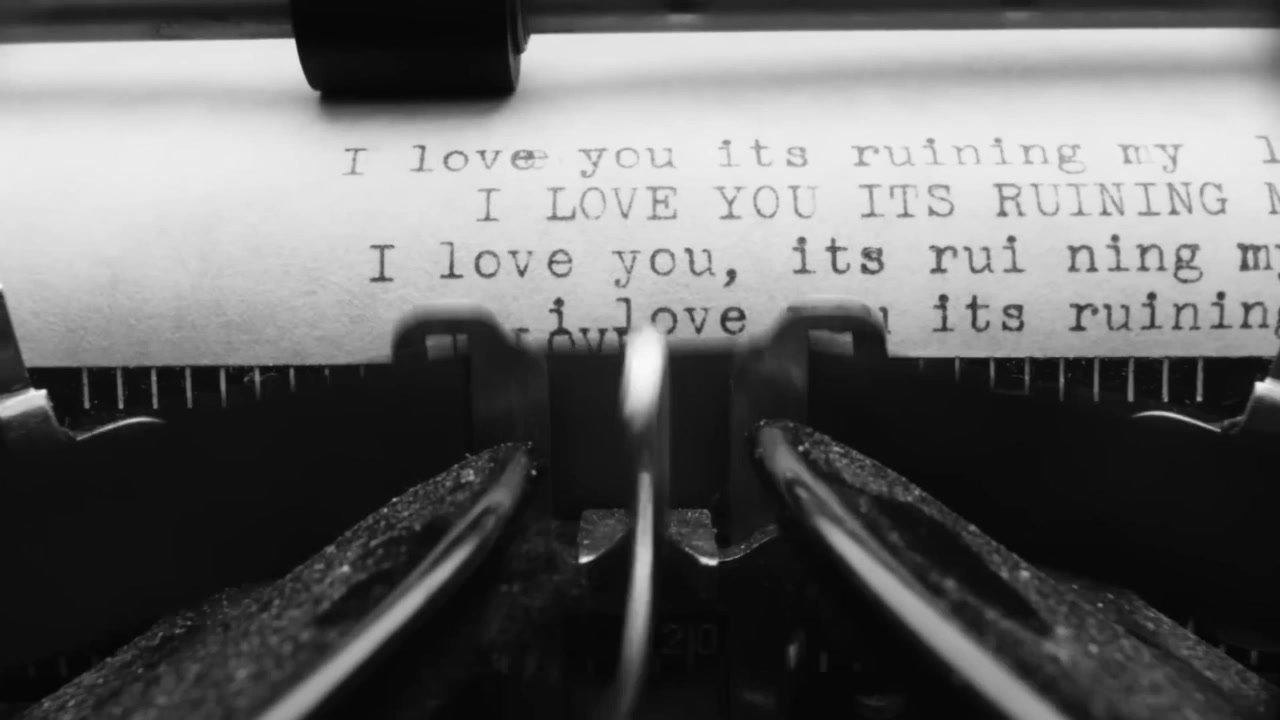 I love you its ruining my l
I LOVE YOU ITS RUINING M
I love you, its rui ning my
i love its ruining
20